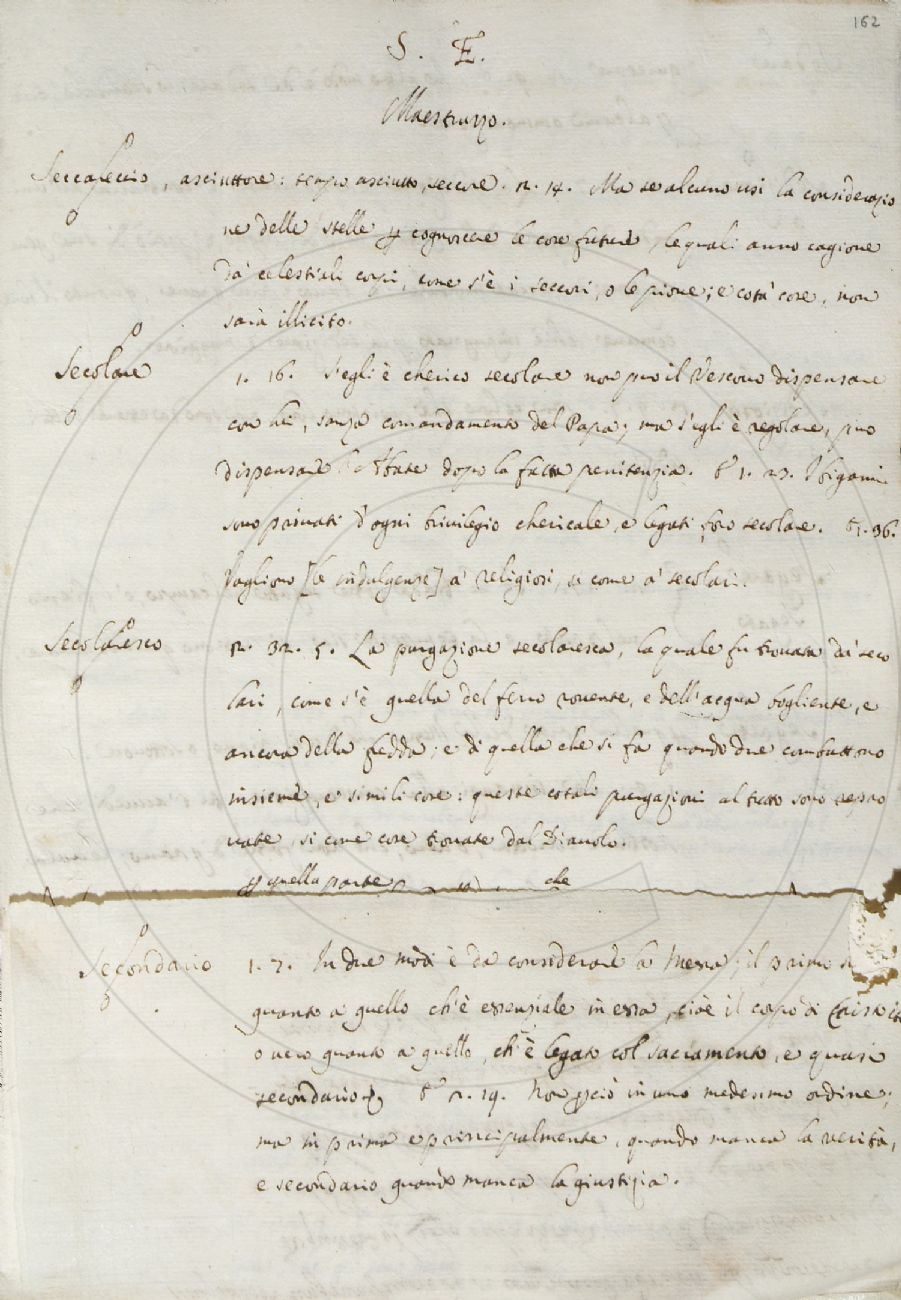 162
S. E.
Maestruzzo.
Seccareccio, asciuttore: tempo asciutto, seccore. 2. 14. Ma se alcuno usi la considerazio
ne delle stelle p cognoscere le cose future, le quali anno cagione
da' celestiali corpi, come s'è i seccori, o le piove, e cotà cose, non
sarà illicito.
Secolare 1. 16. S'egli è cherico secolare non può il Vescovo dispensare
con lui, sanza comandamento del Papa; ma s'egli è regolare, può
dispensare l'Abate dopo la fatta penitenzia. E 1. 23. I bigami
sono privati d'ogni privilegio chericale, e legati foro secolare. E 1. 36.
Vagliono [le indulgenze] a' religiosi, si come a' secolari.
Secolaresco 2. 32. 5. La purgazione secolaresca, la quale fu trovata da' seco
lari, come s'è quella del ferro rovente, e dell'acqua bogliente, e
ancora della fredda; e di quella che si fa quando due combattono
insieme, e simili cose: queste cotali purgazioni al tutto sono repro
vate, si come cose trovate dal Diavolo.
p quella parte che
Secondario 1. 7. In due modi è da considerare la Messa; il primo
quanto a quello ch'è essenziale in essa, cioè il corpo di Cristo
o vero quanto a quello, ch'è legato col sacramento, e quasi
secondario. E 2. 19. Non pciò in uno medesimo ordine;
ma in prima e principalmente, quando manca la verità,
e secondario quando manca la giustizia.